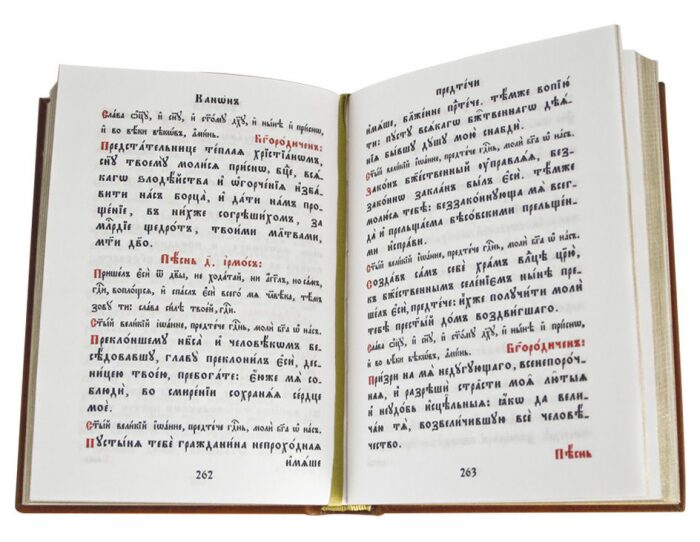 Канѡ́нъ
Сла́ва ѻ҆ц҃ꙋ̀, и҆ сн҃ꙋ, и҆ ст҃о́мꙋ дх҃ꙋ, и҆ ны́нѣ и҆ при́снѡ,
и҆ во вѣ́ки вѣкѡ́въ, а҆ми́нь. Бг҃оро́диченъ:
Предста́тельнице те́плаѧ хрⷭ҇тїа́нѡмъ,
сн҃ꙋ твоемꙋ̀ моли́сѧ при́снѡ, бц҃е, всѧ́-
кагѡ ѕлодѣ́йства и҆ ѡ҆горче́нїѧ и҆зба́-
вити на́съ борца̀, и҆ да́ти на́мъ про-
ще́нїе, въ ни́хже согрѣши́хомъ, за
млⷭ҇рдїе щедро́тъ, твои́ми мл҃твами,
мт҃и дв҃о.
Пѣ́снь д҃. І҆рмо́съ:
Пріше́лъ є҆сѝ ѿ дв҃ы, не хода́тай, ни а҆́гг҃лъ, но са́мъ,
гдⷭ҇и, вопло́щсѧ, и҆ сп҃слъ є҆сѝ всего́ мѧ чл҃вѣ́ка, тѣ́мъ
зовꙋ́ ти: сла́ва си́лѣ твое́й, гдⷭ҇и.
Ст҃ы́й вели́кїй і҆ѡа́нне, прⷣте́че гдⷭ҇нь, молѝ бг҃а ѡ҆ на́съ.
Преклонѣ́шемꙋ нб҃са̀ и҆ человѣ́кѡмъ бе-
сѣ́довавшемꙋ, главꙋ̀ преклони́лъ є҆сѝ, дес-
ни́цею твое́ю, пребога́те: є҆́юже мѧ̀ со-
блюдѝ, во смире́нїи сохранѧ́ѧ се́рдце
моѐ.
Ст҃ы́й вели́кїй і҆ѡа́нне, прⷣте́че гдⷭ҇нь, молѝ бг҃а ѡ҆ на́съ.
Пꙋсты́нѧ тебѐ граждани́на непрохо́днаѧ
и҆мѧ́ше
262
предте́чи
и҆мѧ́ше, блаже́нне прⷣте́че. тѣ́мже вопїю́
ти: пꙋ́стꙋ всѧ́кагѡ бж҃твеннагѡ дѣѧ́-
нїѧ бы́вшꙋ дꙋ́шꙋ мою̀ снабдѝ.
Ст҃ы́й вели́кїй і҆ѡа́нне, предте́че гдⷭ҇нь, молѝ бг҃а ѡ҆ на́съ.
Зако́нъ бж҃ественный ᲂу҆правлѧ́ѧ, без-
зако́ннѡ закла́нъ бы́лъ є҆сѝ. тѣ́мже
молю́сѧ тебѣ̀: беззако́ннꙋюща мѧ̀ всег-
да̀ и҆ прельща́ема бѣсо́вскими прельще́нь-
ми и҆спра́ви.
Ст҃ы́й вели́кїй і҆ѡа́нне, предте́че гдⷭ҇нь, молѝ бг҃а ѡ҆ на́съ.
Созда́въ са́мъ себѐ хра́мъ влⷣце цр҃ю,
къ бж҃ественнымъ селе́нїємъ ны́нѣ пре-
ше́лъ є҆сѝ, предте́че: и҆́хже полꙋчи́ти молѝ
тебѣ̀ прест҃ы́й до́мъ воздви́гшаго.
Сла́ва ѻ҆ц҃ꙋ̀, и҆ сн҃ꙋ, и҆ ст҃о́мꙋ дх҃ꙋ, и҆ ны́нѣ и҆ при́снѡ,
и҆ во вѣ́ки вѣкѡ́въ, а҆ми́нь. Бг҃оро́диченъ:
При́зри на мѧ̀ недꙋ́гꙋющаго, всенепоро́ч-
наѧ, и҆ разрѣшѝ стра̑сти моѧ̑ лю̑тыѧ
и҆ неꙋдо́бь и҆сцѣ́льныѧ: ꙗ҆́кѡ да вели-
ча́ю тѧ̀, возвели́чившꙋю всѐ человѣ́-
чество.
Пѣ́снь
263